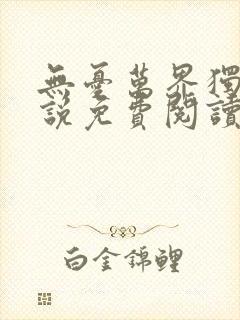 無憂萬界獨
說免費閱讀
白金錦鯉